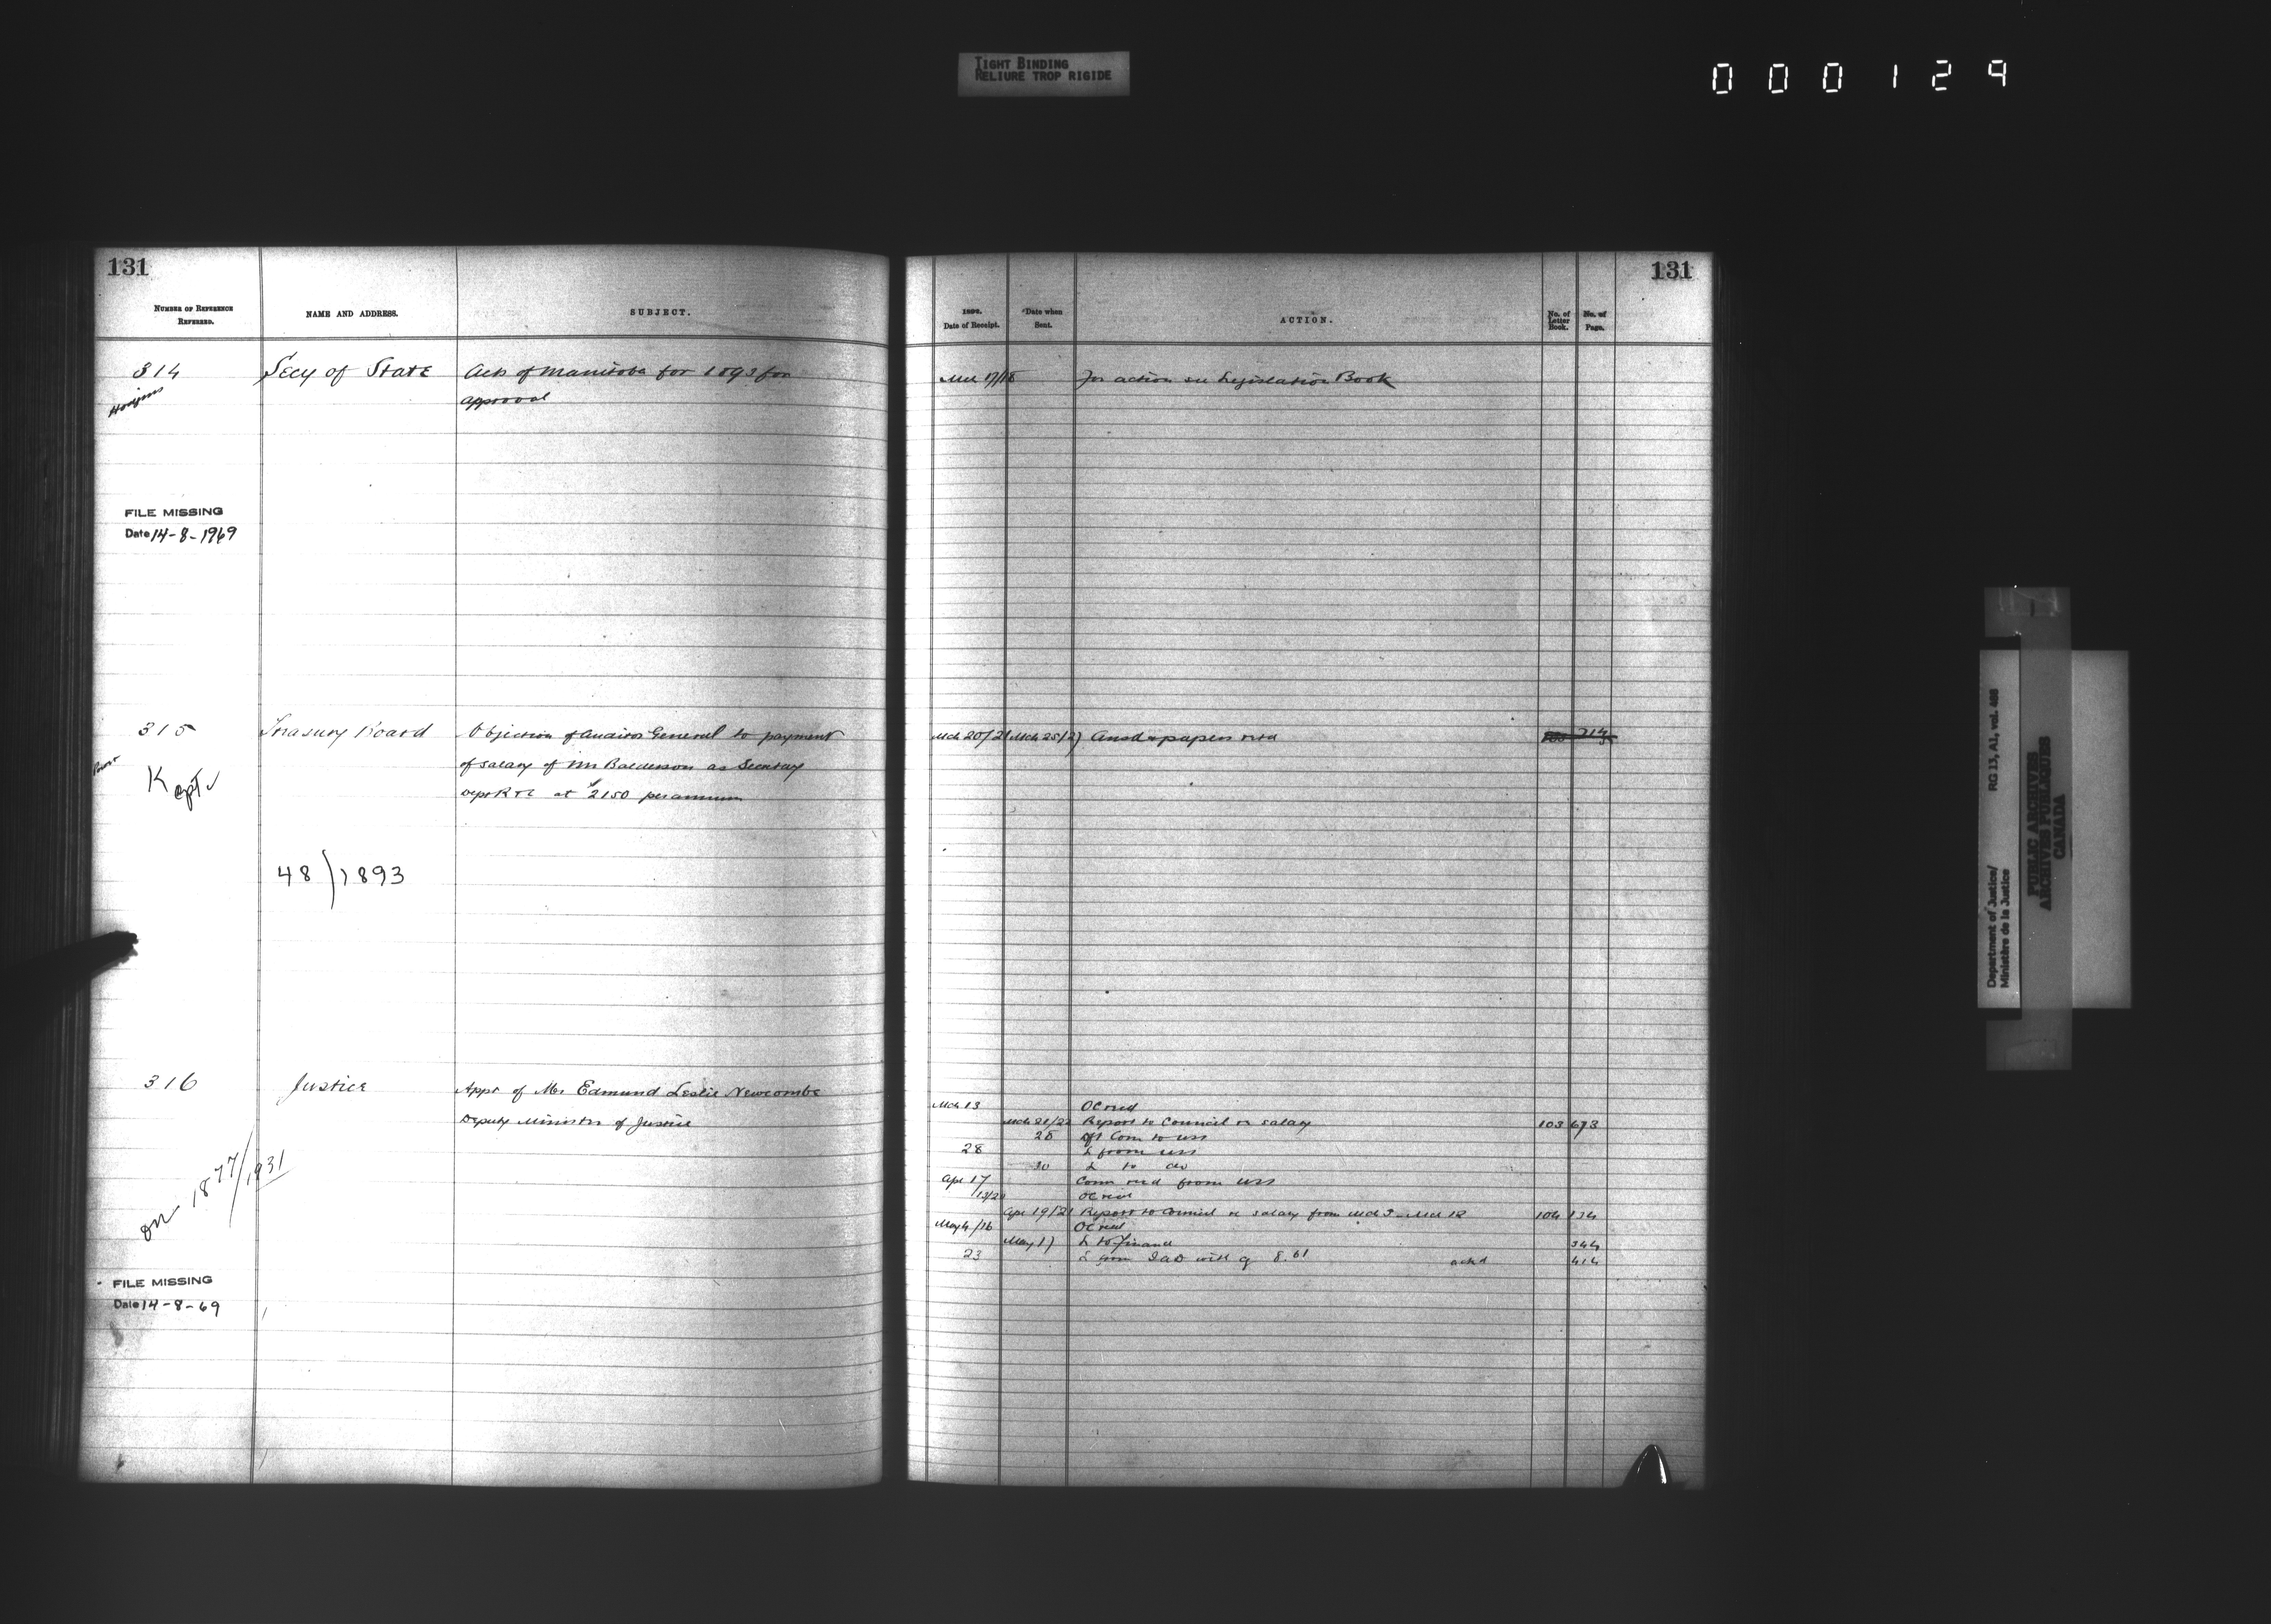 TIGHT BINDING
RELIURE TROP RIGIDE
000129
131
NUMBER OF REFERENCE
REFERRED.
NAME AND ADDRESS.
SUBJECT.
314
Secy of State
Acts of Manitoba for 1893 for
approval
Hodgins
FILE MISSING
Date 14-8-1969
315
Treasury Board
Objection of Auditor General to payment
of salary of Mr Balderson as Secretary
Dept R & C at $2150 per annum
Kept ✓
48/1893
316
Justice
Appt of Mr Edmund Leslie Newcombe
Deputy Minister of Justice
on 1877/1931
FILE MISSING
Date 14-8-69
131
Date of Receipt.
Date when
Sent.
ACTION.
No. of
Letter
Book.
No. of
Page.
Mch 17/18 For action see Legislation Book
Mch 20/21 Mch 25/27 Ansd & papers retd
Mch 13 OC recd
Mch 21/22 Report to Council re salary 103 673
28 L from uss
30 L to do
Apr 17 Comn recd from uss
OC recd
Apr 19/21 Report to Council re salary from Mch 3 - Mch 12 104 134
May 4/16 OC recd
May 17 L to Finance 344
23 L from with cq 8.61 ackd 414
Department of Justice/ RG 13, A1, vol. 488
Ministère de la Justice
PUBLIC ARCHIVES
ARCHIVES PUBLIQUES
CANADA